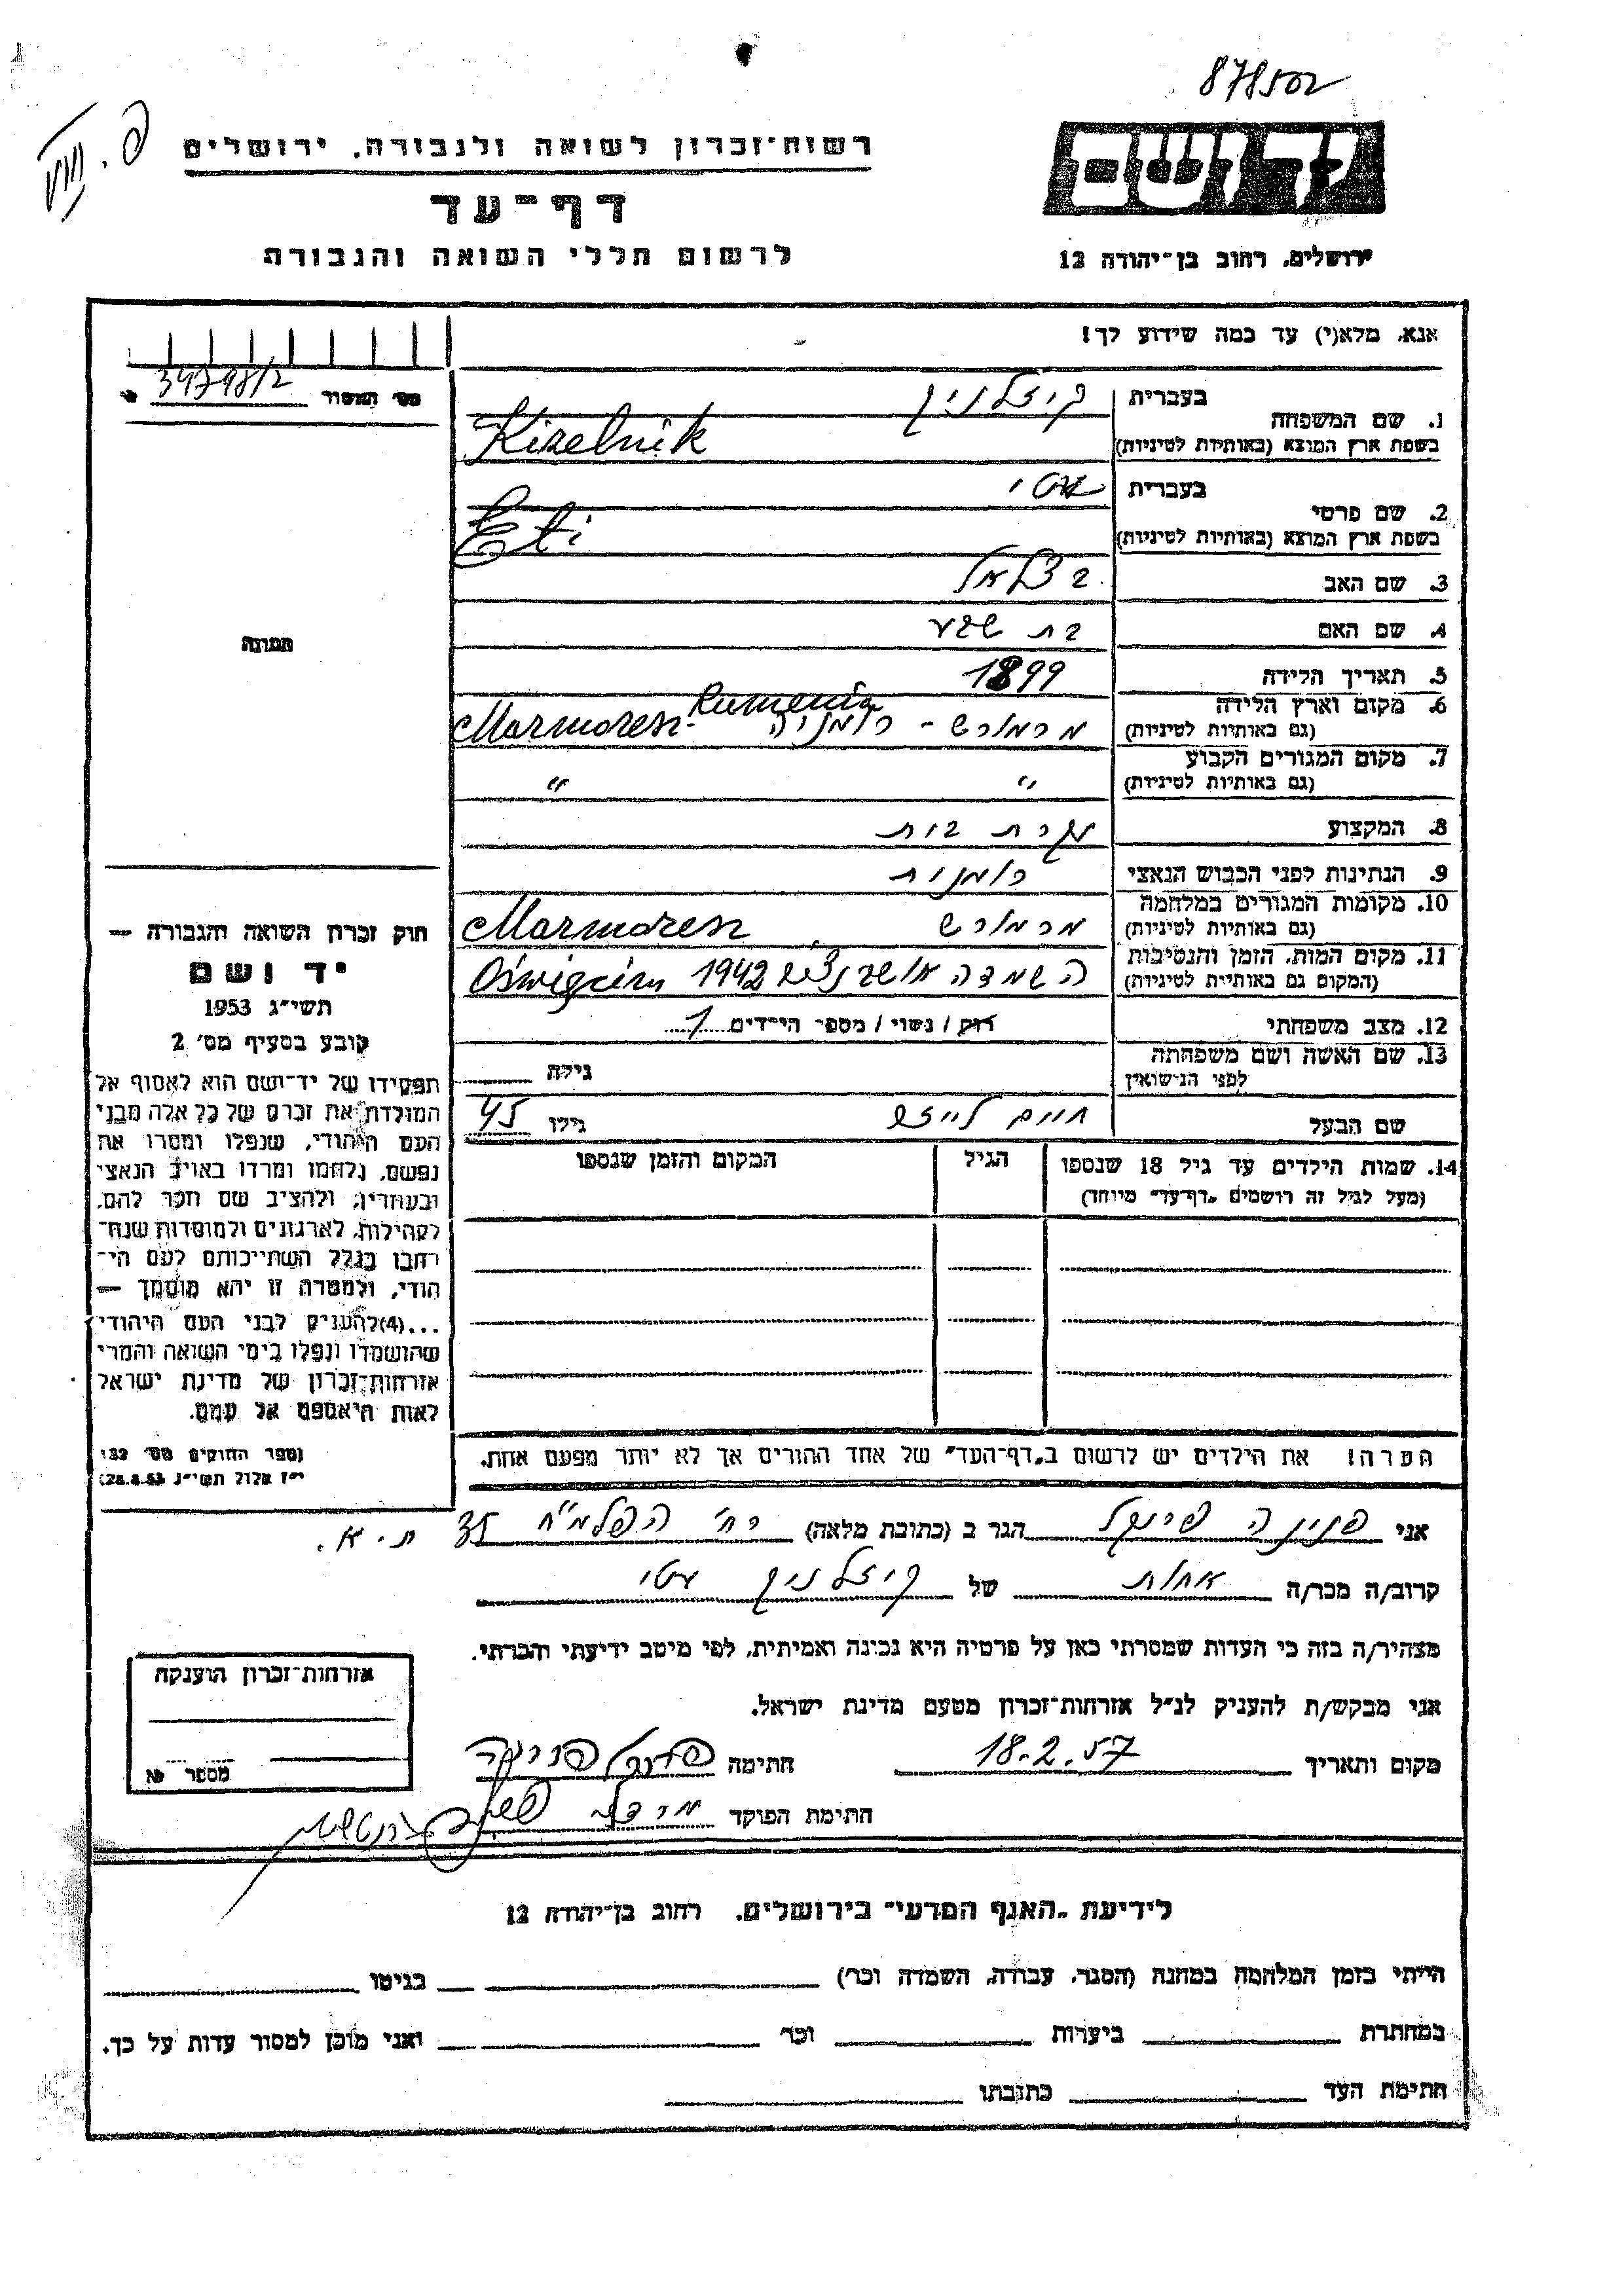 878502
רשות־זכרון לשואה ולגבורה, ירושלים
דף־עד
לרשום חללי השואה והגבורה
ידושם
ירושלים, רחוב בן־יהודה 12
אנא, מלא(י) עד כמה שידוע לך!
מס' המסור 34798/2
1. שם המשפחה
בעברית קיזלניק
בשפת ארץ המוצא (באותיות לטיניות) Kizelnik
2. שם פרטי
בעברית אטי
בשפת ארץ המוצא (באותיות לטיניות) Eti
3. שם האב בצלאל
4. שם האם בת שבע
5. תאריך הלידה 1899
6. מקום וארץ הלידה
(גם באותיות לטיניות) מרמורש - רומניה Rumenia Marmoresz
7. מקום המגורים הקבוע
(גם באותיות לטיניות) " "
8. המקצוע עקרת בית
9. הנתינות לפני הכבוש הנאצי רומנית
10. מקומות המגורים במלחמה
(גם באותיות לטיניות) מרמורש Marmoresz
11. מקום המות, הזמן והנסיבות
(המקום גם באותיות לטיניות) השמדה אושוויץ 1942 Oświęcim
12. מצב משפחתי רוק / נשוי / מספר הילדים 1
13. שם האשה ושם משפחתה
לפני הנישואין גילה
שם הבעל חיים לייזר גילו 45
14. שמות הילדים עד גיל 18 שנספו
(מעל לגיל זה רושמים "דף־עד" מיוחד)
הגיל
המקום והזמן שנספו
הערה! את הילדים יש לרשום ב"דף־העד" של אחד ההורים אך לא יותר מפעם אחת.
תמונה
חוק זכרון השואה והגבורה —
יד ושם
תשי"ג 1953
קובע בסעיף מס' 2
תפקידו של יד־ושם הוא לאסוף אל
המולדת את זכרם של כל אלה מבני
העם היהודי, שנפלו ומסרו את
נפשם, נלחמו ומרדו באויב הנאצי
ובעוזריו, ולהציב שם וזכר להם,
לקהילות, לארגונים ולמוסדות שנח־
רבו בגלל השתייכותם לעם הי־
הודי, ולמטרה זו יהא מוסמך —
...(4) להעניק לבני העם היהודי
שהושמדו ונפלו בימי השואה והמרי
אזרחות־זכרון של מדינת ישראל
לאות היאספם אל עמם.
(ספר החוקים מס' 132
י"ז אלול תשי"ג 28.8.53)
אני פנינה פרנקל הגר ב (כתובת מלאה) רח' הפלמ"ח 35 ת.א.
קרוב/ה מכר/ה אחות של קיזלניק אטי
מצהיר/ה בזה כי העדות שמסרתי כאן על פרטיה היא נכונה ואמיתית, לפי מיטב ידיעתי והכרתי.
אני מבקש/ת להעניק לנ"ל אזרחות־זכרון מטעם מדינת ישראל.
מקום ותאריך 18.2.57 חתימה פרנקל פנינה
חתימת הפוקד
אזרחות־זכרון הוענקה
מספר №
לידיעת "האגף המדעי" בירושלים, רחוב בן־יהודה 12
הייתי בזמן המלחמה במחנה (הסגר, עבודה, השמדה וכר') בגיטו
במחתרת ביערות וכר' ואני מוכן למסור עדות על כך.
חתימת העד כתובתו